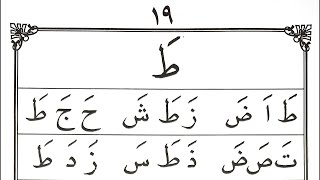 ١٩
طَ
طَ اَ ضَ زَ طَ شَ حَ جَ طَ
تَ صَ ضَ ذَ طَ سَ زَ دَ طَ